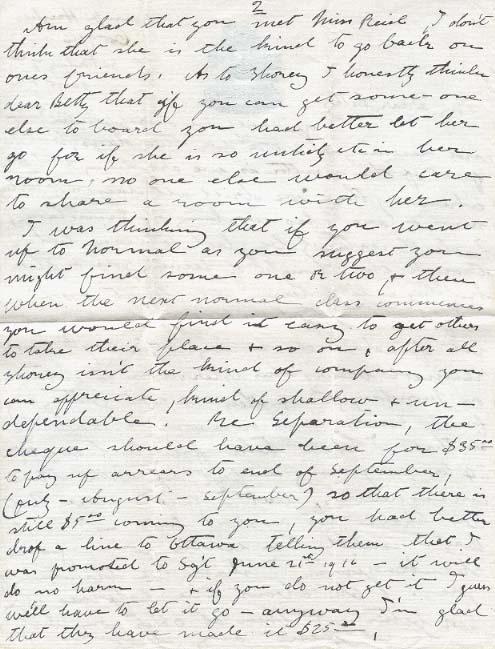 2
Am glad that you met Miss Reid, I don't
think that she is the kind to go back on
ones friends. As to Shorey I honestly think
dear Betty that if you can get some-one
else to board you had better let her
go for if she is so untidy etc in her
room, no one else would care
to share a room with her.
I was thinking that if you went
up to Normal as you suggest you
might find some one or two, & then
when the next normal class commences
you would find it easy to get others
to take their place & so on, after all
Shorey isn't the kind of company you
can appreciate, kind of shallow & un-
dependable. Re Separation, the
cheque should have been for $35.00
to pay up arrears to end of September,
(July - August - September) so that there is
still $5.00 coming to you, you had better
drop a line to Ottawa telling them that I
was promoted to Sgt June 21st 1916 - it will
do no harm - & if you do not get it I guess
we'll have to let it go - anyway I'm glad
that they have made it $25.00,